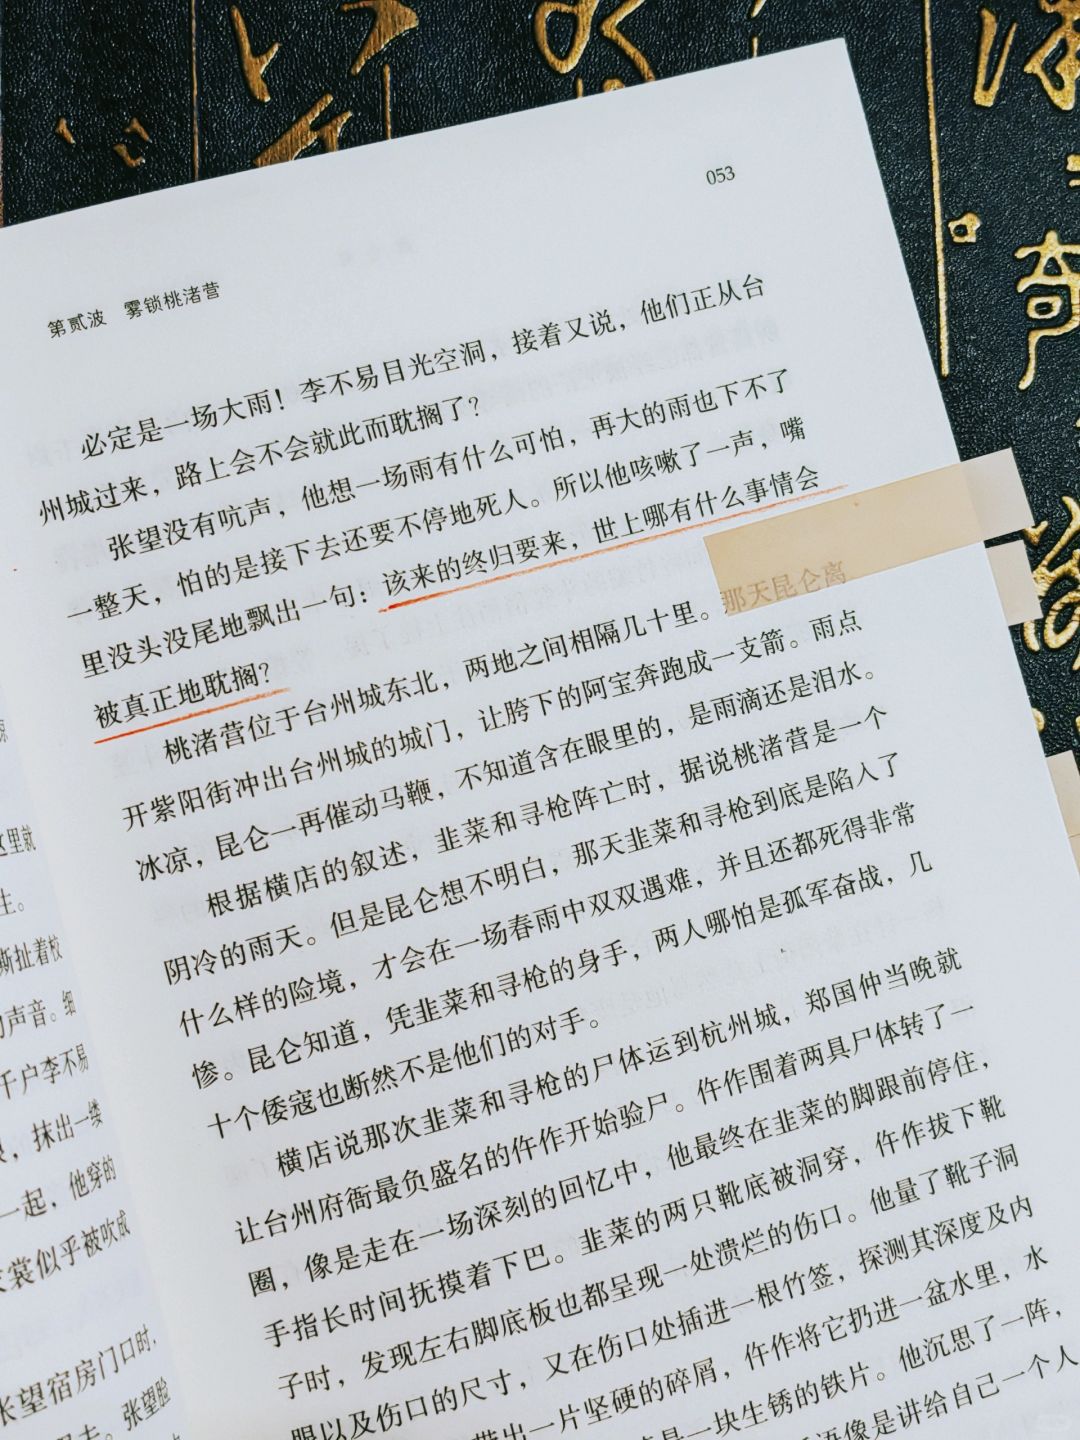 053
第贰波 雾锁桃渚营
必定是一场大雨！李不易目光空洞，接着又说，他们正从台
州城过来，路上会不会就此而耽搁了？
张望没有吭声，他想一场雨有什么可怕，再大的雨也下不了
一整天，怕的是接下去还要不停地死人。所以他咳嗽了一声，嘴
里没头没尾地飘出一句：该来的终归要来，世上哪有什么事情会
被真正地耽搁？
桃渚营位于台州城东北，两地之间相隔几十里。那天昆仑离
开紫阳街冲出台州城的城门，让胯下的阿宝奔跑成一支箭。雨点
冰凉，昆仑一再催动马鞭，不知道含在眼里的，是雨滴还是泪水。
根据横店的叙述，韭菜和寻枪阵亡时，据说桃渚营是一个
阴冷的雨天。但是昆仑想不明白，那天韭菜和寻枪到底是陷入了
什么样的险境，才会在一场春雨中双双遇难，并且还都死得非常
惨。昆仑知道，凭韭菜和寻枪的身手，两人哪怕是孤军奋战，几
十个倭寇也断然不是他们的对手。
横店说那次韭菜和寻枪的尸体运到杭州城，郑国仲当晚就
让台州府衙最负盛名的仵作开始验尸。仵作围着两具尸体转了一
圈，像是走在一场深刻的回忆中，他最终在韭菜的脚跟前停住，
手指长时间抚摸着下巴。韭菜的两只靴底被洞穿，仵作拔下靴
子时，发现左右脚底板也都呈现一处溃烂的伤口。他量了靴子洞
眼以及伤口的尺寸，又在伤口处插进一根竹签，探测其深度及内
带出一片坚硬的碎屑，仵作将它扔进一盆水里，水
是一块生锈的铁片。他沉思了一阵，
语像是讲给自己一个人
这里就
生。
撕扯着校
声音。细
千户李不易
，抹出一缕
一起，他穿的
裳似乎被吹成
张望宿房门口时，
去。张望脸
奇